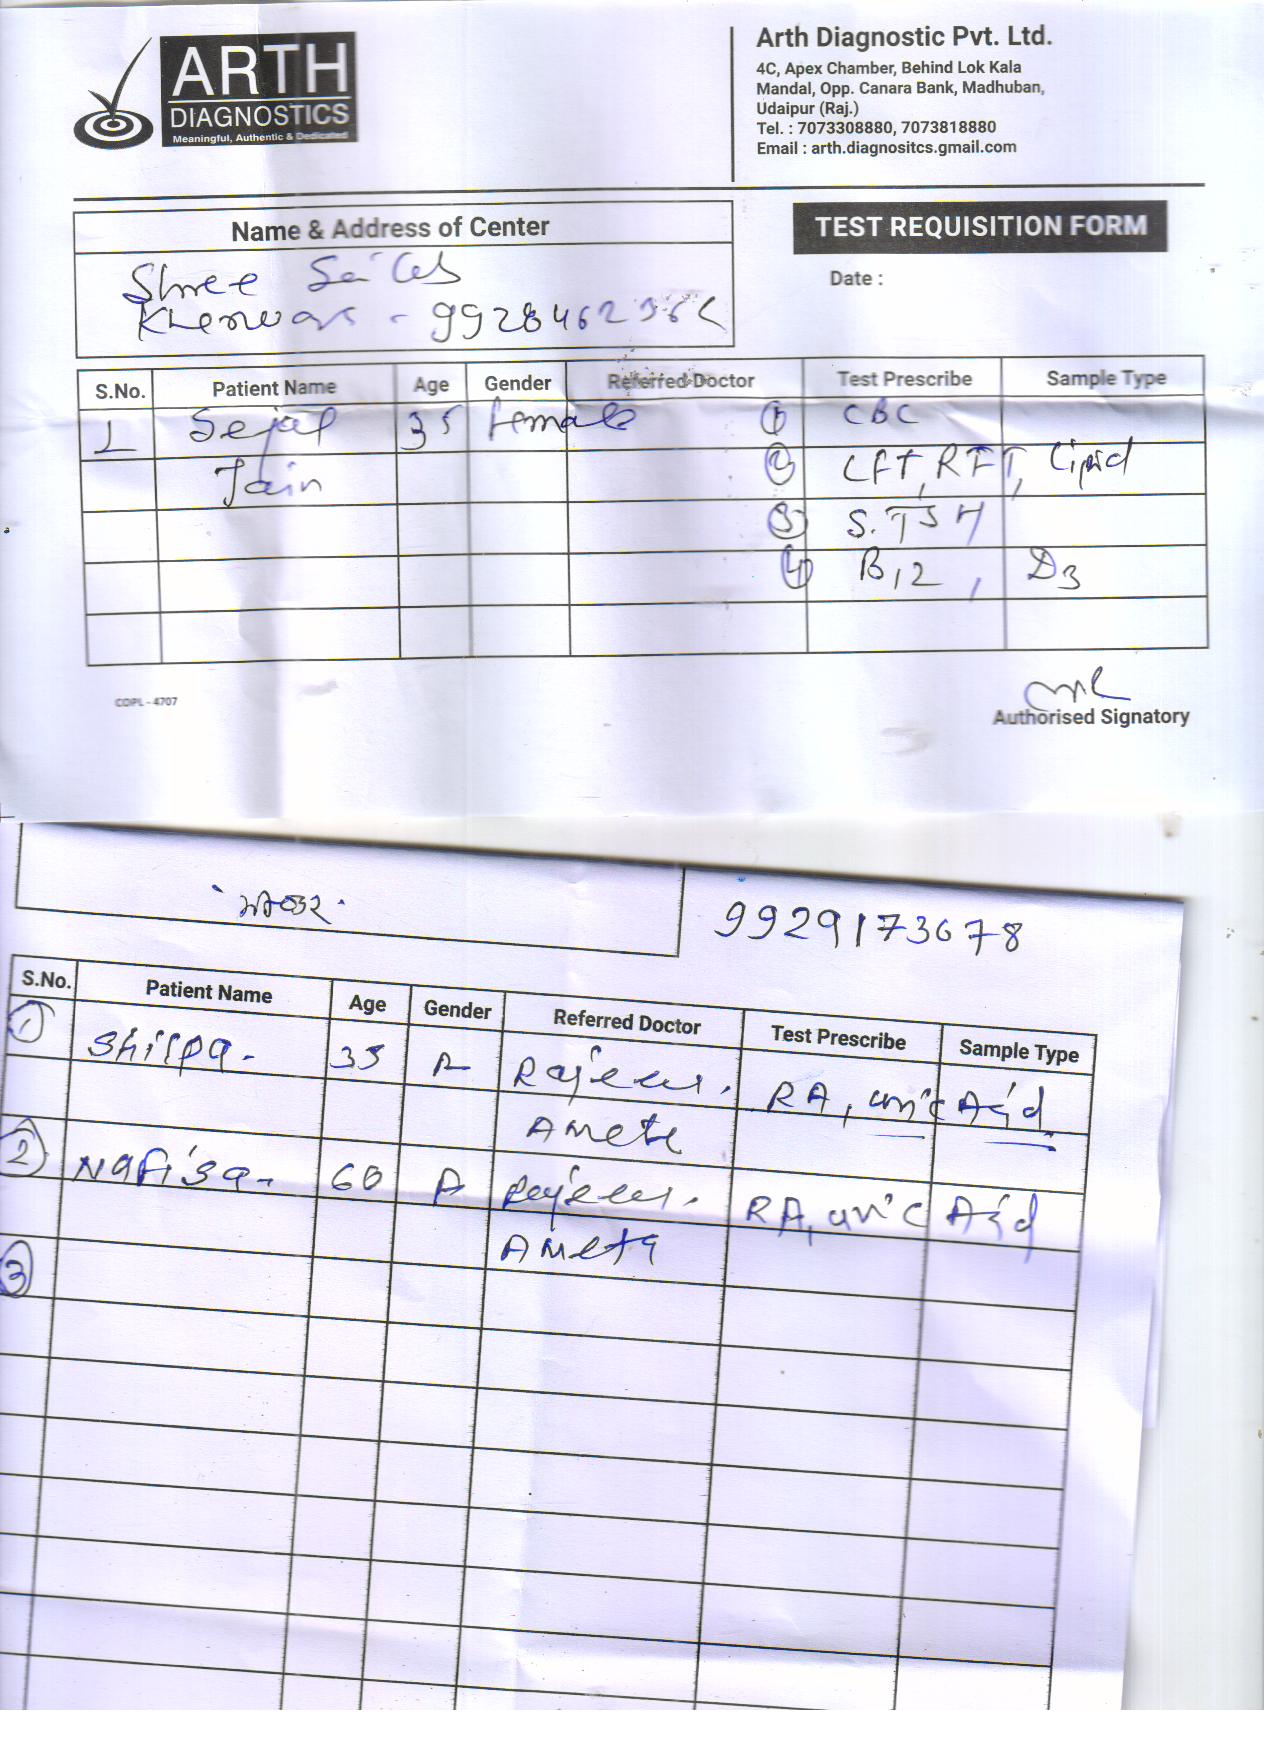 ARTH
DIAGNOSTICS
Meaningful, Authentic & Dedicated
Arth Diagnostic Pvt. Ltd.
4C, Apex Chamber, Behind Lok Kala
Mandal, Opp. Canara Bank, Madhuban,
Udaipur (Raj.)
Tel. : 7073308880, 7073818880
Email : arth.diagnositcs.gmail.com
Name & Address of Center
TEST REQUISITION FORM
Date :
Shree
S.No. Patient Name Age Gender Referred Doctor Test Prescribe Sample Type
1 Sejal 35 female ① CBC
Jain ② LFT, RFT, Lipid
③ S.TSH
④ B12, D3
COPL - 4707
Authorised Signatory
9929173678
S.No. Patient Name Age Gender Referred Doctor Test Prescribe Sample Type
① Shilpa - 35 Rajeev. RA, uric Acid
Ameta
② Nafisa - 60 Rajeev. RA, uric Acid
Ameta
③